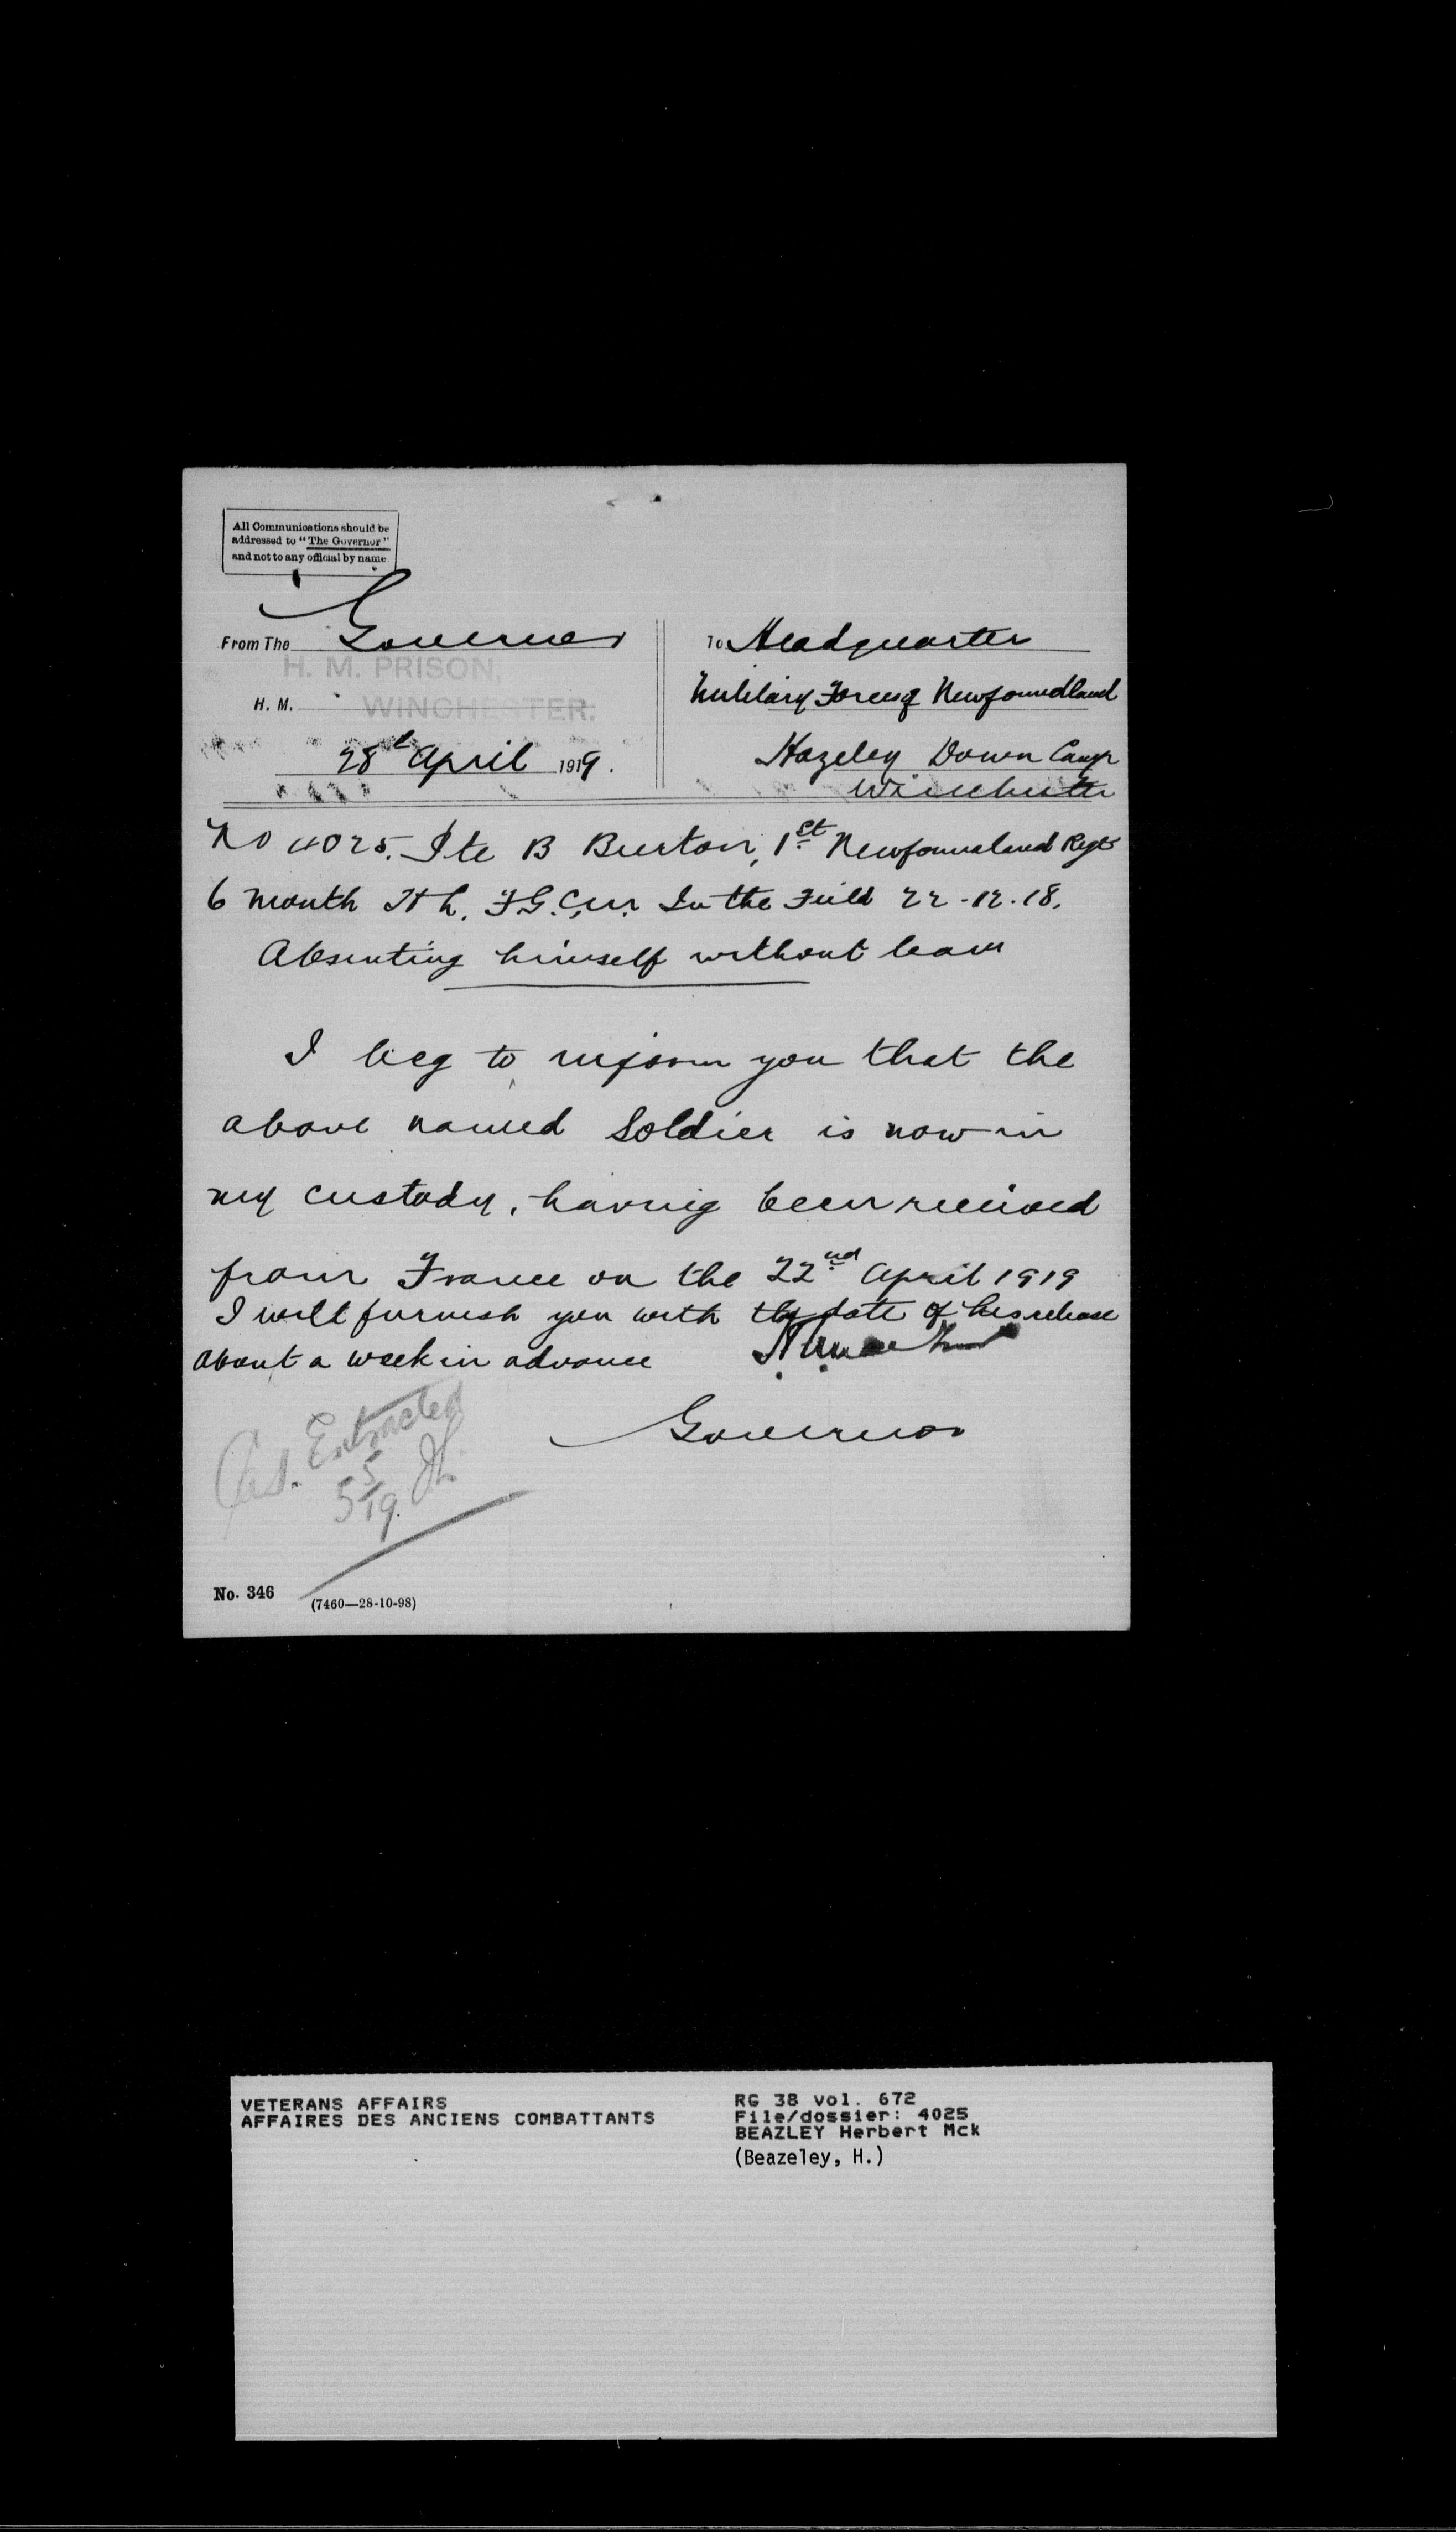 All Communications should be
addressed to "The Governor"
and not to any official by name.
From The Governor
H. M. PRISON,
H. M. WINCHESTER.
28th April 1919.
To Headquarters
Military Forces of Newfoundland
Hazeley Down Camp
Winchester
No 4025. Pte B Burton, 1st Newfoundland Regt
6 month H L. F.G.C.M. In the Field 22-12-18.
Absenting himself without leave
I beg to inform you that the
above named Soldier is now in
my custody, having been received
from France on the 22nd April 1919
I will furnish you with the date of his release
about a week in advance
Governor
Cas. Extracted
5/5/19.
No. 346
(7460—28-10-98)
VETERANS AFFAIRS
AFFAIRES DES ANCIENS COMBATTANTS
RG 38 vol. 672
File/dossier: 4025
BEAZLEY Herbert Mck
(Beazeley, H.)